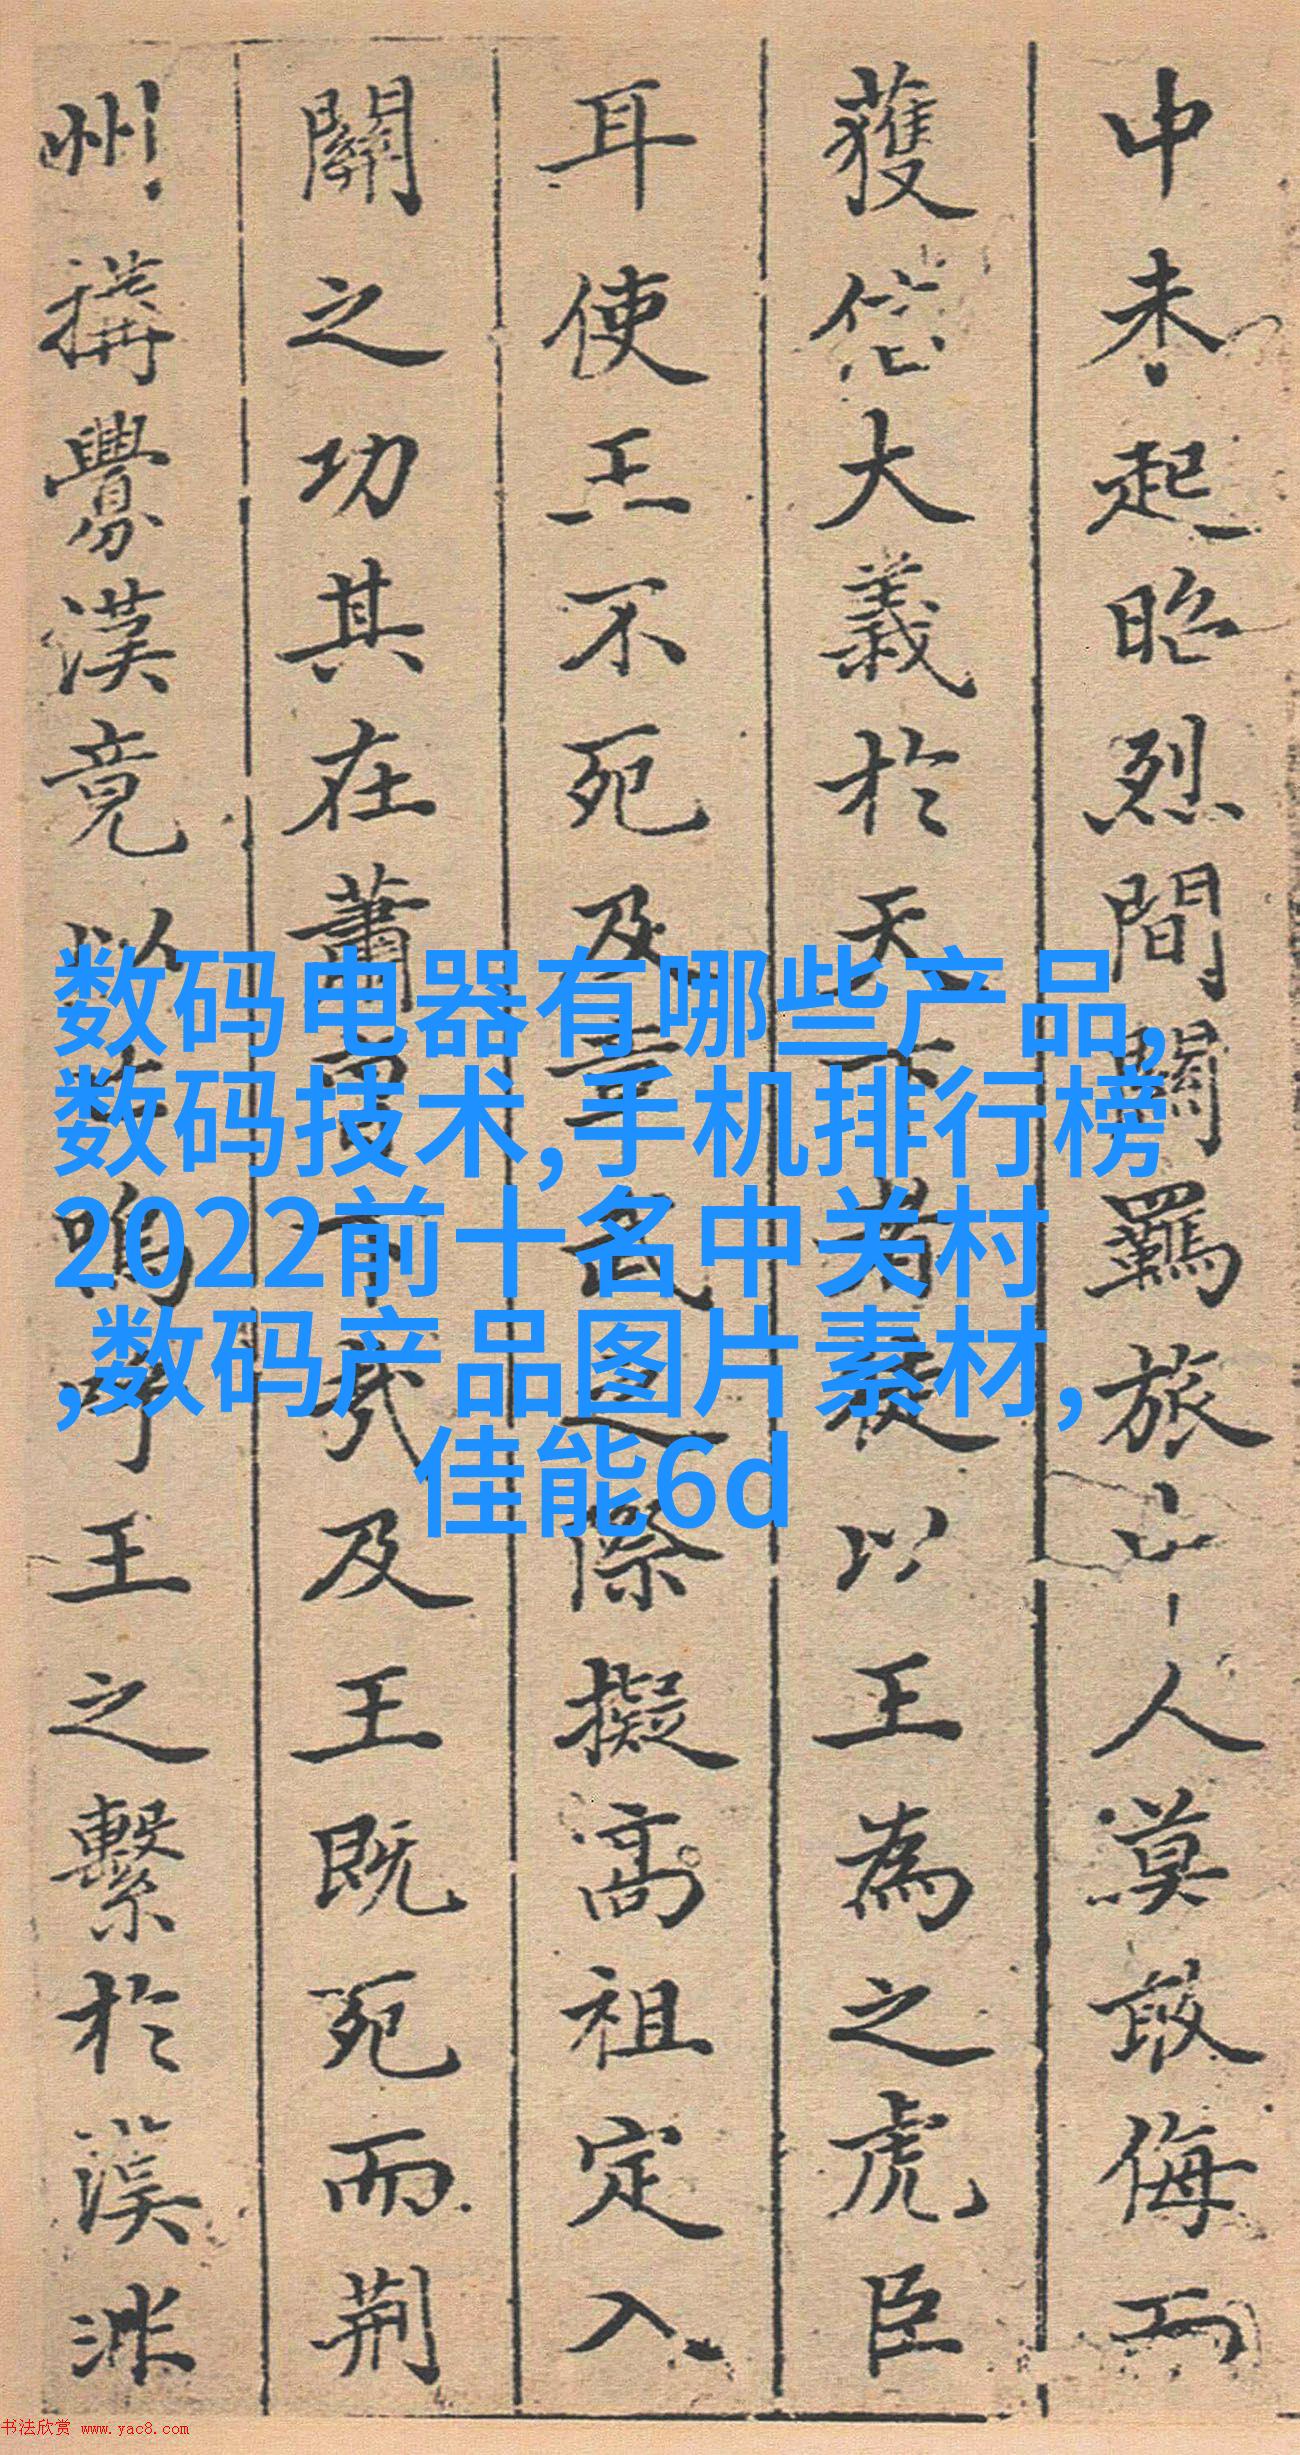 中未起昭烈間關羈旅人莫敢侮而
獲信大義於天下者徒以王為之虎臣
耳使王不死及章武之際擬高祖定入
關之功其在蕭曹下哉及王既死而荊
州搆釁漢竟以亡嗚呼王之繫於漢
数码电器有哪些产品,
数码技术,手机排行榜
2022前十名中关村
,数码产品图片素材,
佳能6d
书法欣赏 www.yac8.com